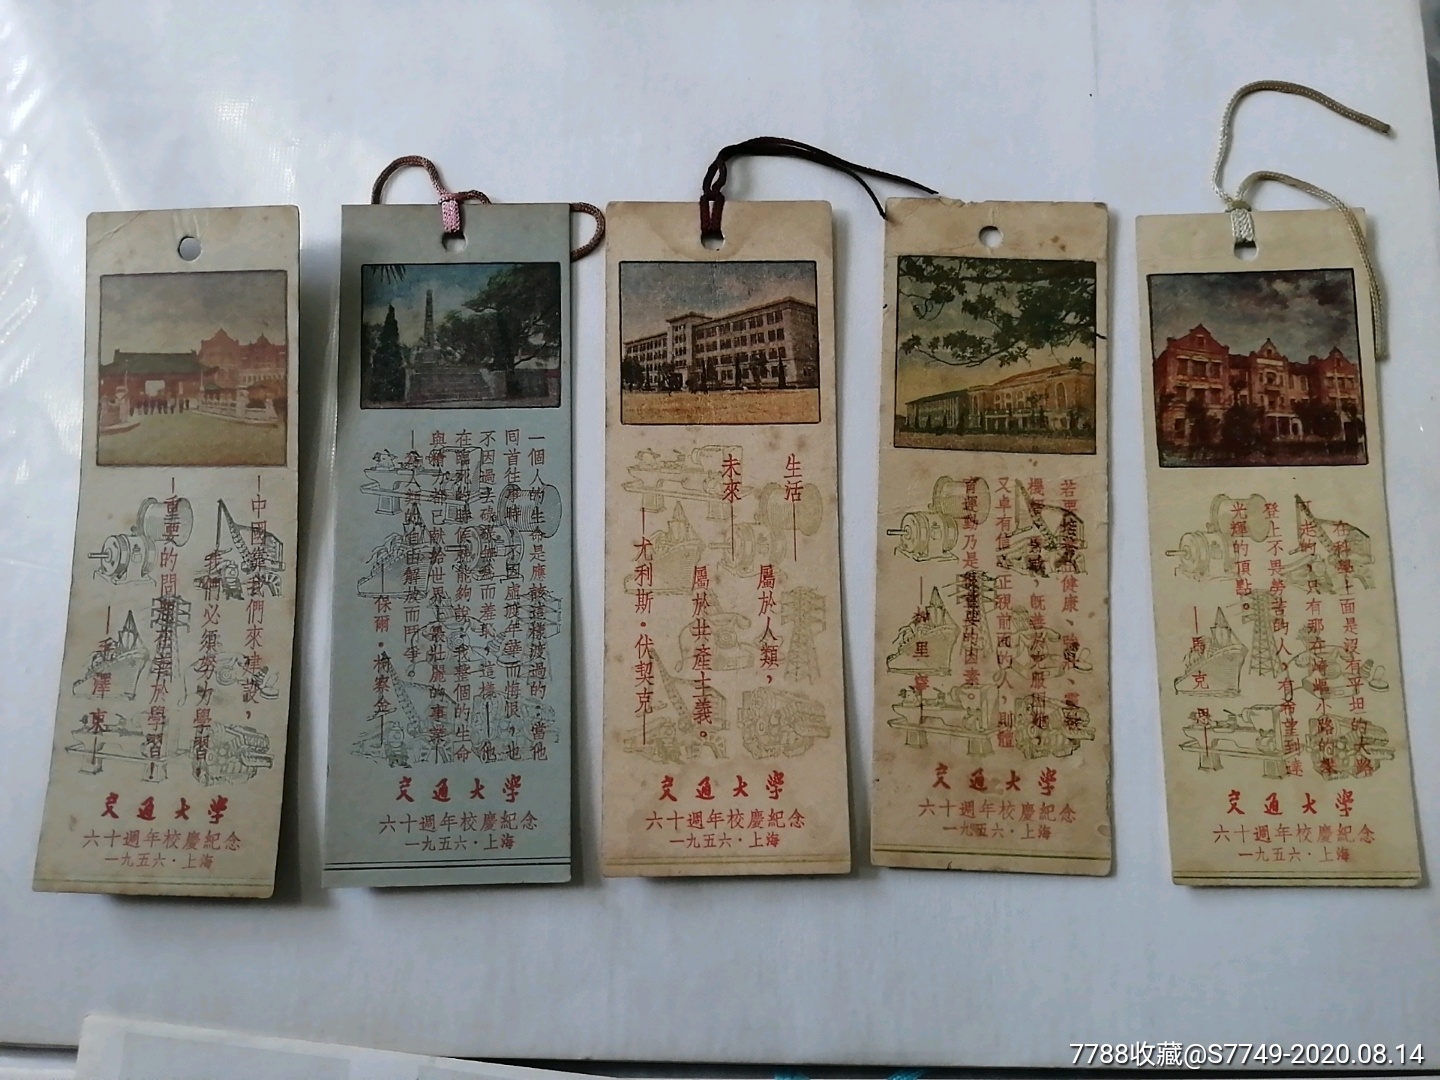 中國靠我們來建設，
我們必須努力學習！
重要的問題在善於學習！
—毛澤東—
交通大学
六十週年校慶紀念
一九五六·上海
一個人的生命是應該這樣渡過的：當他
回首往事時，不因虛渡年華而悔恨，也
不因過去碌碌無為而羞恥，這樣—他
在臨死的時候就能夠說：我整個的生命
與精力都已獻給世界上最壯麗的事業
—為人類的自由解放而鬥爭。
—保爾·柯察金—
交通大学
六十週年校慶紀念
一九五六·上海
生活——屬於人類，
未來——屬於共產主義。
—尤利斯·伏契克—
交通大学
六十週年校慶紀念
一九五六·上海
若要培養出健康、強壯、靈敏
又卓有信心正視前面的人，則體
育運動乃是很重要的因素。
交通大学
六十週年校慶紀念
一九五六·上海
在科學上面是沒有平坦的大路
可走的，只有那在崎嶇小路的攀
登上不畏勞苦的人，有希望到達
光輝的頂點。
—馬克思—
交通大学
六十週年校慶紀念
一九五六·上海
7788收藏@S7749-2020.08.14